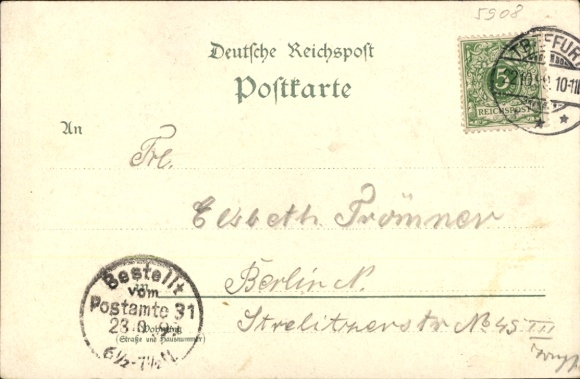 5908
TREFFURT
10-11
5
REICHSPOST
Deutsche Reichspost
Postkarte
An
Frl.
Elsbeth Trömner
in Berlin N.
Bestellt
vom
Postamte 31
6½-7½N.
Wohnung
(Straße und Hausnummer)
Strelitzerstr No 45 III